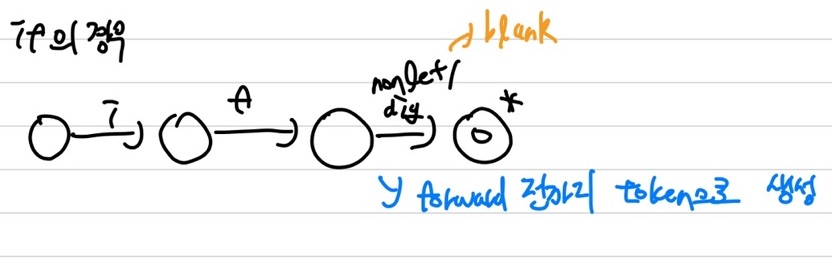 if의 경우
→ blank
nonlet/
i f dig *
↳ forward 전까지 token으로 생성